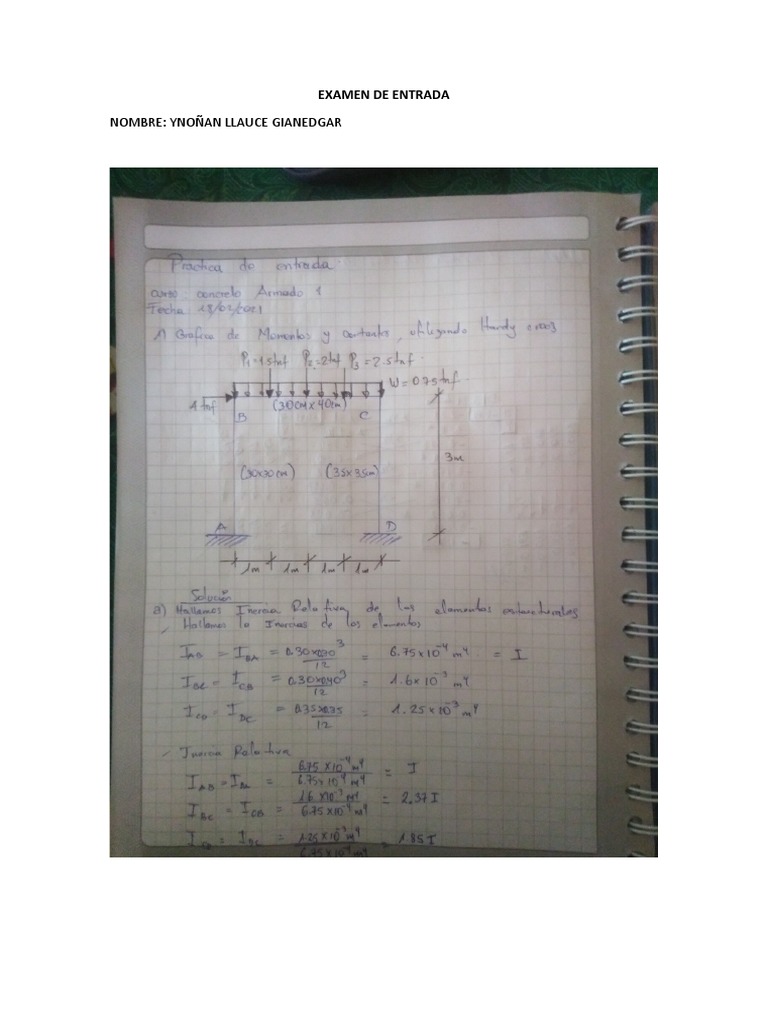 EXAMEN DE ENTRADA
NOMBRE: YNOÑAN LLAUCE GIANEDGAR
Practica de entrada.
curso: concreto Armado 1
Fecha: 13/02/2021
1) Grafico de Momentos y cortantes, utilizando Hardy cross
P1=1.5tnf P2=2tnf P3=2.5tnf
W=0.75tnf
4 tnf
(30cm x 40cm)
B C
(30x30cm) (35x35cm) 3m
A D
1m 1m 1m 1m
Solución
a) Hallamos Inercia Relativa de los elementos estructurales
✓ Hallamos la Inercias de los elementos
I AB = I BA = 0.30x0.30³/12 = 6.75x10⁻⁴ m⁴ = I
I BC = I CB = 0.30x0.40³/12 = 1.6x10⁻³ m⁴
I CD = I DC = 0.35x0.35/12 = 1.25x10⁻³ m⁴
✓ Inercia Relativa
I AB = I BA = 6.75x10⁻⁴ m⁴/6.75x10⁻⁴ m⁴ = I
I BC = I CB = 1.6x10⁻³ m⁴/6.75x10⁻⁴ m⁴ = 2.37 I
I CD = I DC = 1.25x10⁻³ m⁴/6.75x10⁻⁴ m⁴ = 1.85 I